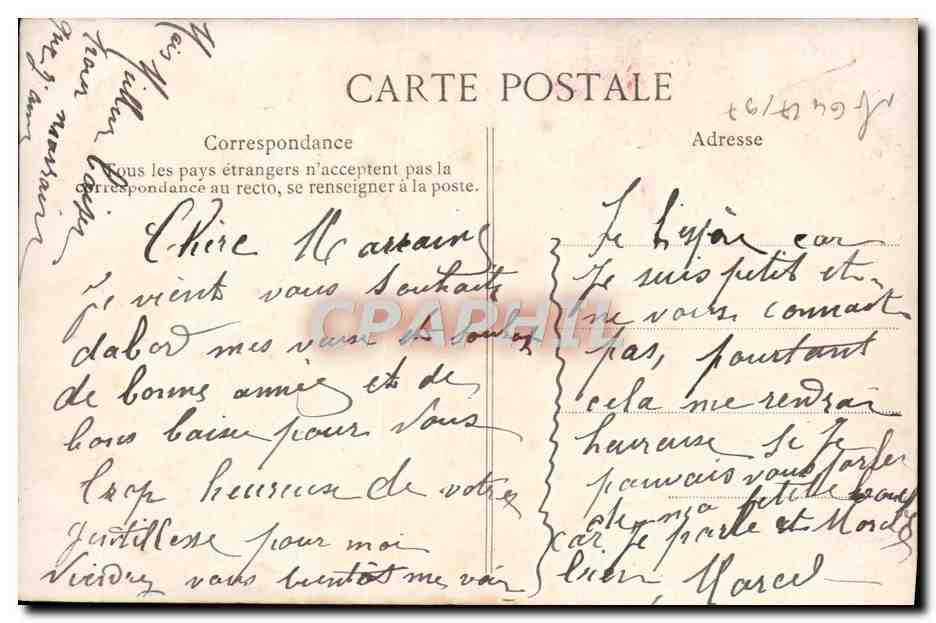 CARTE POSTALE
Correspondance
Tous les pays étrangers n'acceptent pas la
correspondance au recto, se renseigner à la poste.
Adresse
Chère Marraine
je vient vous Souhaite
dabord mes vœux et souhait
de bonne année et de
bons baise pour Vous
trop heureuse de votre
gentillesse pour moi
Viendrez vous bientôt me voir
Je l'espère, car
Je suis petit et
ne vous connait
pas, pourtant
cela me rendrai
heureuse Si Je
pouvais vous parler
de ma petite
car Je parle et
bien, Marcel
que j'aime
marraine
CPAPHIL